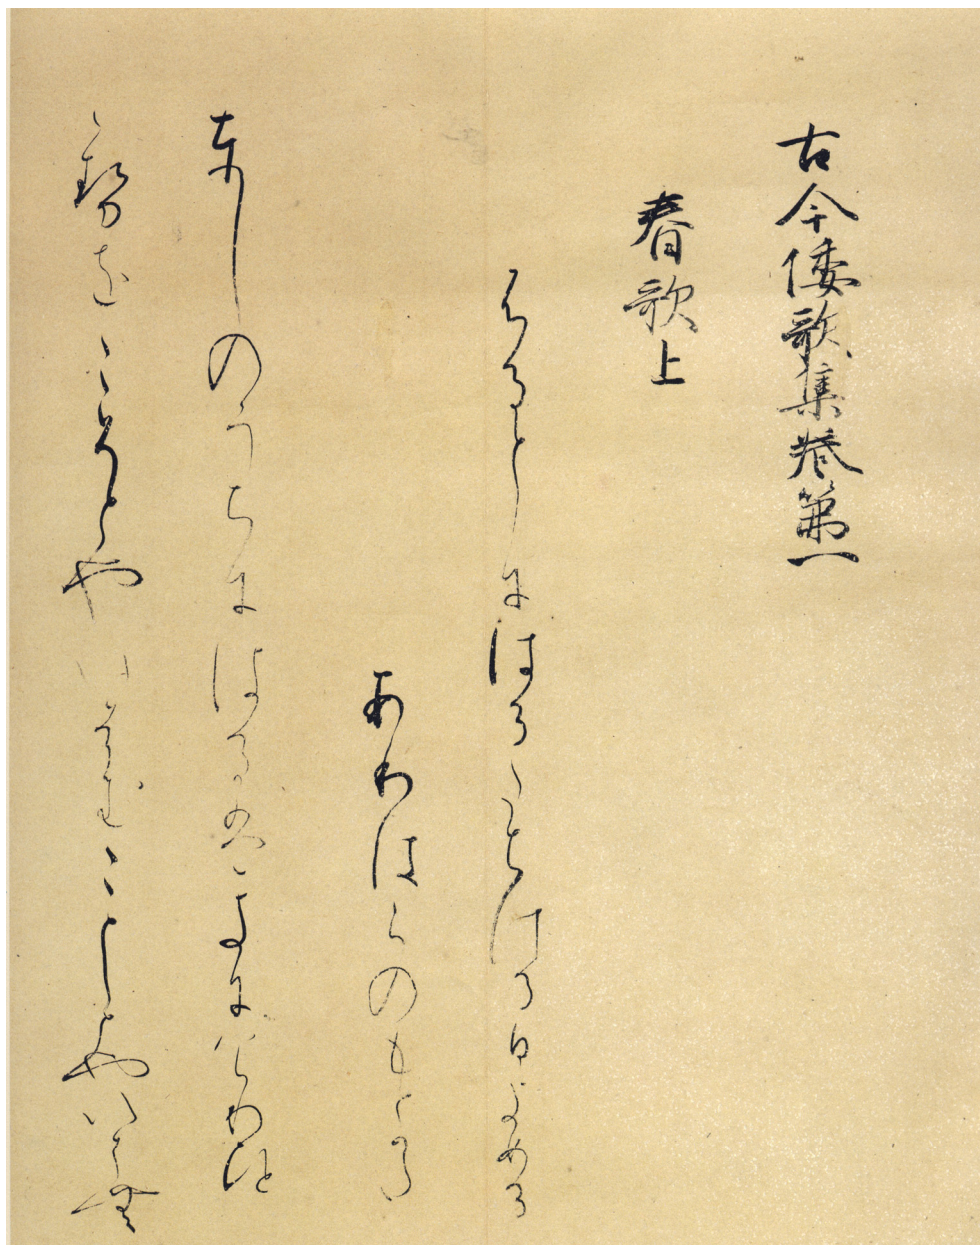 古今倭歌集巻第一
春歌上
ふるとしにはるたちける日よめる
ありはらのもとかた
としのうちにはるはきにけりひと
とせをこそとやいはむことしとやいはむ